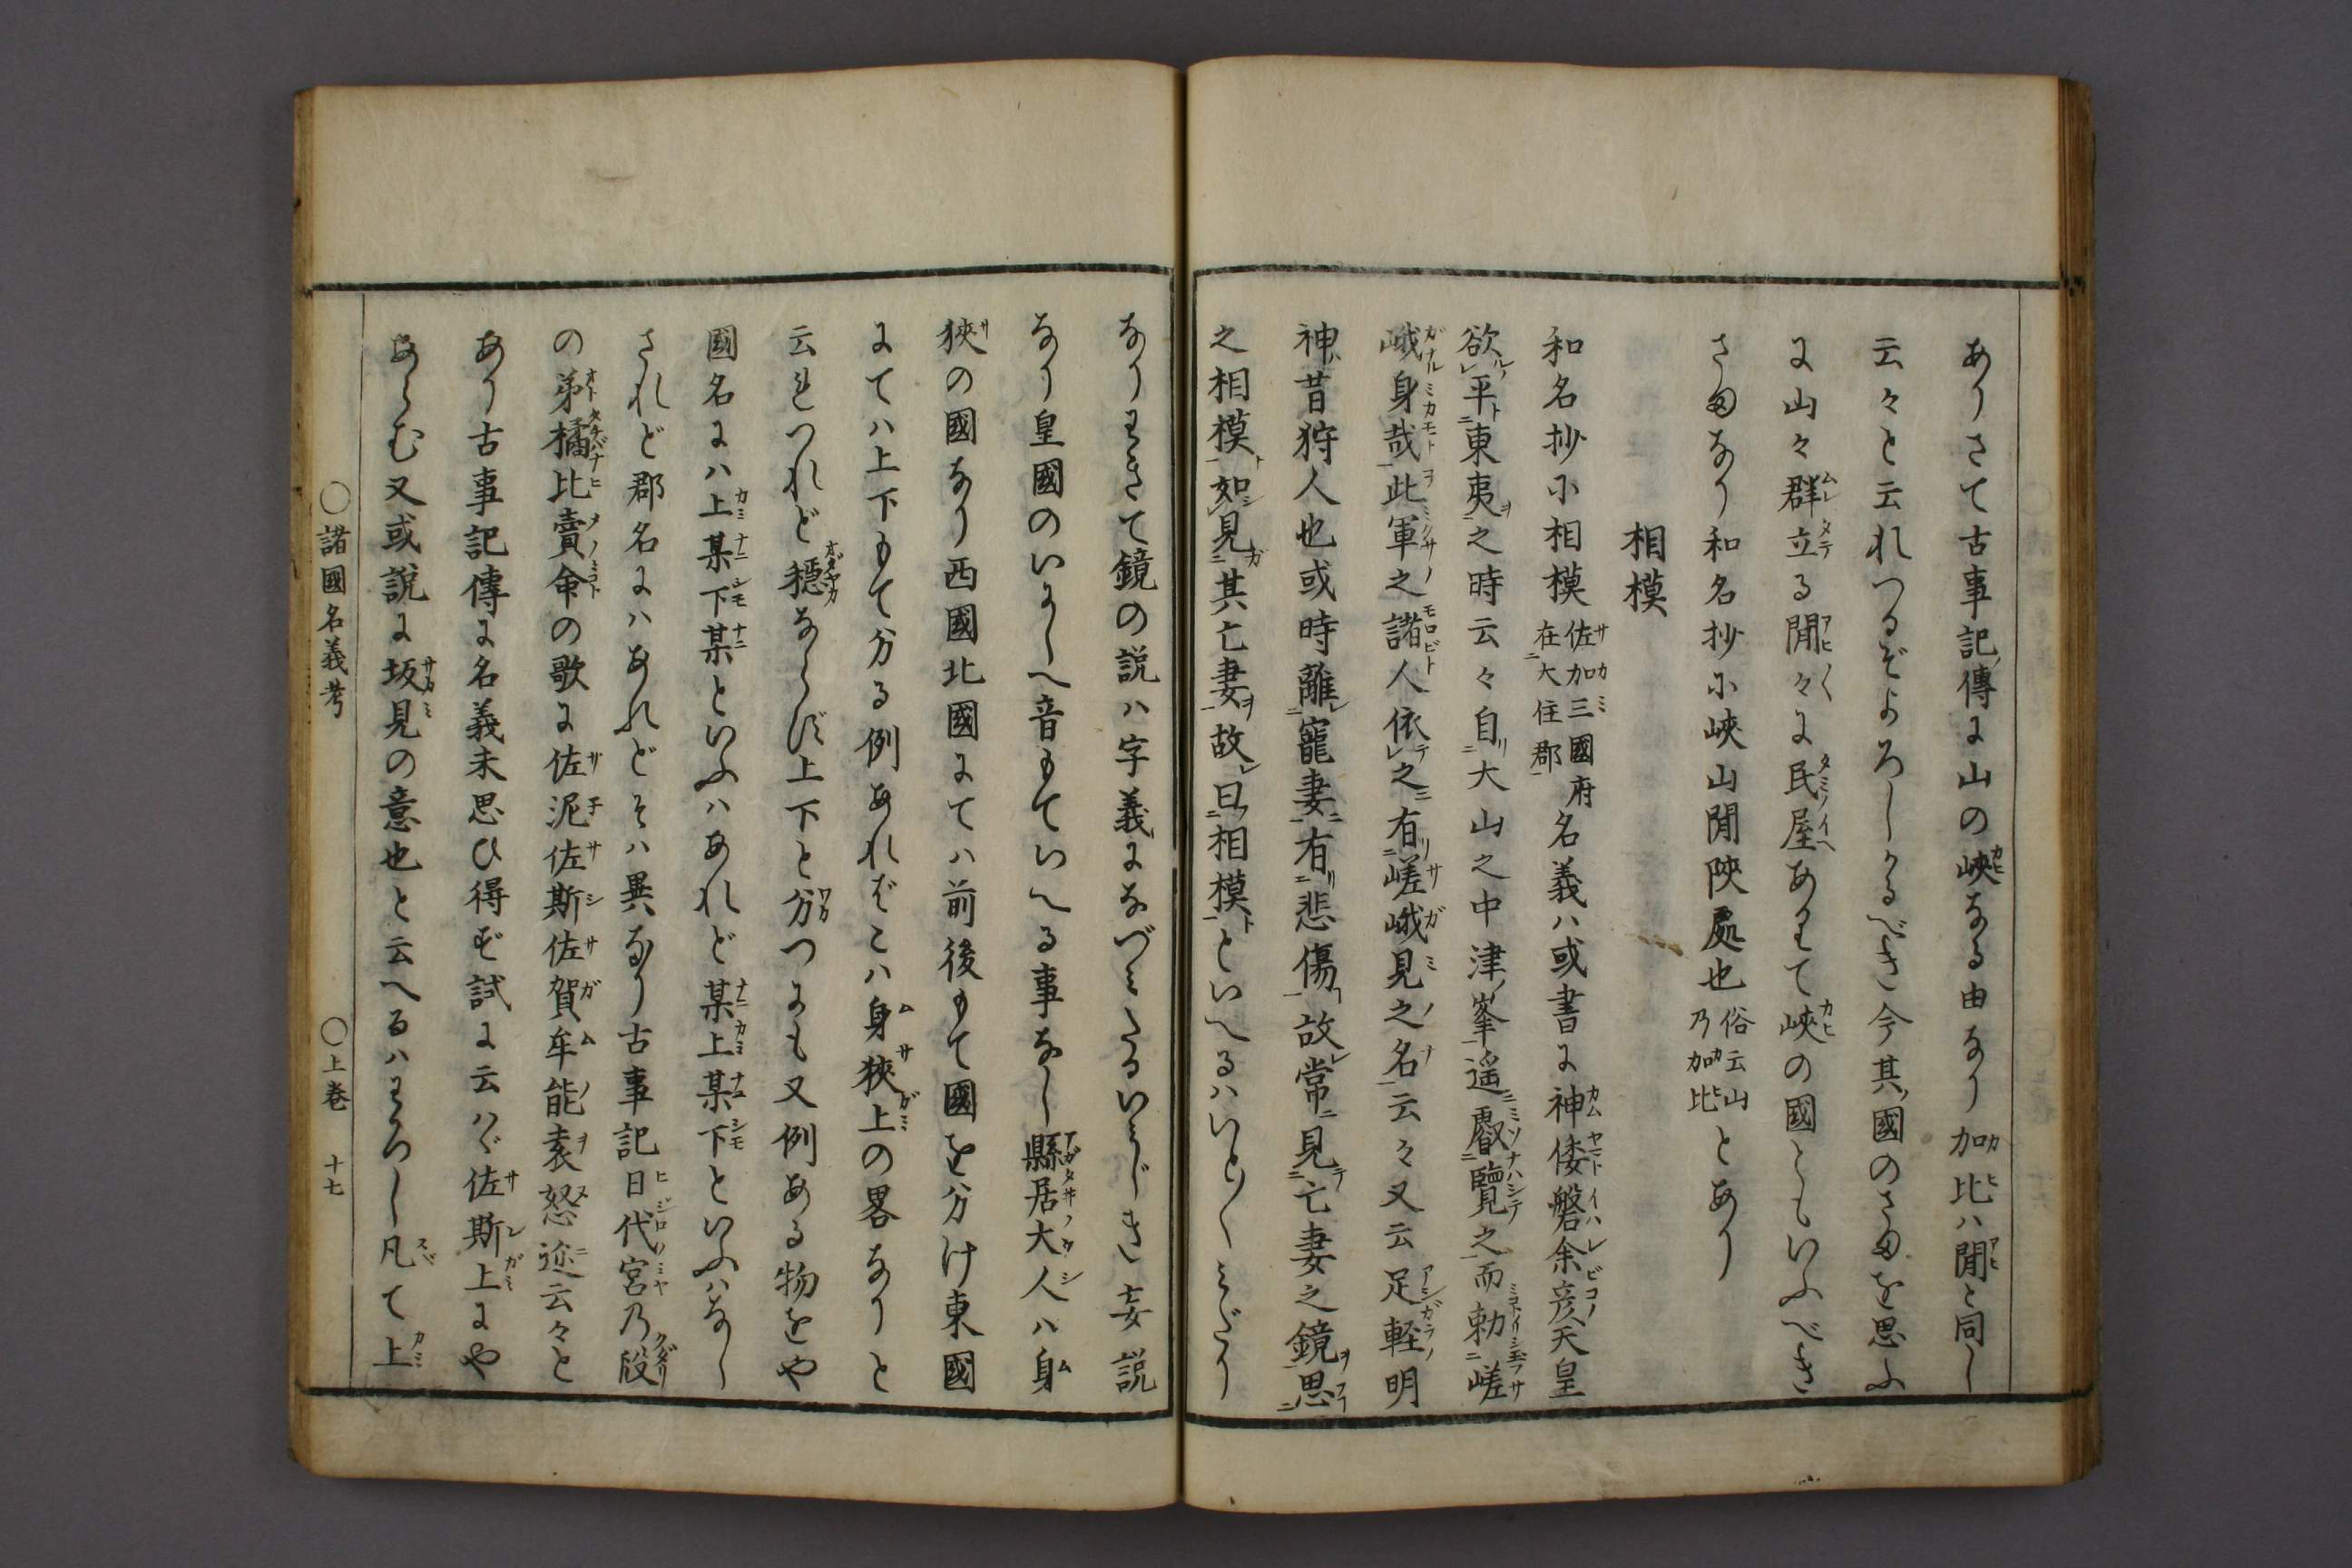 ありさて古事記傳に山の峽なる由なり加比ハ間と同し
云々と云れつるぞよろしかるべき今其國のさまを思ふ
に山々群立る間々に民屋ありて峽の國ともいふべき
さまなり和名抄小峽山間陜處也俗云山乃加比とあり
相模
和名抄小相模佐加三國府在大住郡名義ハ或書に神倭磐余彦天皇
欲平東夷之時云々自大山之中津峯遥叡覽之而勅嵯
峨身哉此軍之諸人依之有嵯峨見之名云々又云足輕明
神昔狩人也或時離寵妻有悲傷故常見亡妻之鏡思
之相模如見其亡妻故曰相模といへるハいと〳〵みだり
なりわきて鏡の説ハ字義になづミたるいミじき妄説
なり皇國のいにしへ音もていへる事なし縣居大人ハ身
狹の國なり西國北國にてハ前後もて國を分け東國
にてハ上下もて分る例あれバこハ身狹上の畧なりと
云はれつれど穩ならず上下と分つにも又例ある物をや
國名にハ上某下某といふハあれど某上某下といふハなし
されど郡名にハあれどそハ異なり古事記日代宮乃段
の弟橘比賣命の歌に佐泥佐斯佐賀牟能袁怒迩云々と
あり古事記傳に名義未思ひ得ず試に云ハヾ佐斯上にや
あらむ又或説に坂見の意也と云へるハわろし凡て上
○諸國名義考 ○上巻 十七